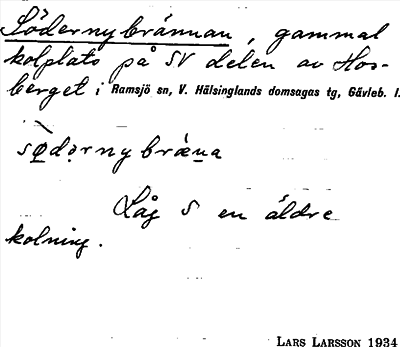 Södernybrännan, gammal
kolplats på SV delen av Hos-
berget i Ramsjö sn, V. Hälsinglands domsagas tg, Gävleb. l.
Låg S en äldre
kolning.
LARS LARSSON 1934